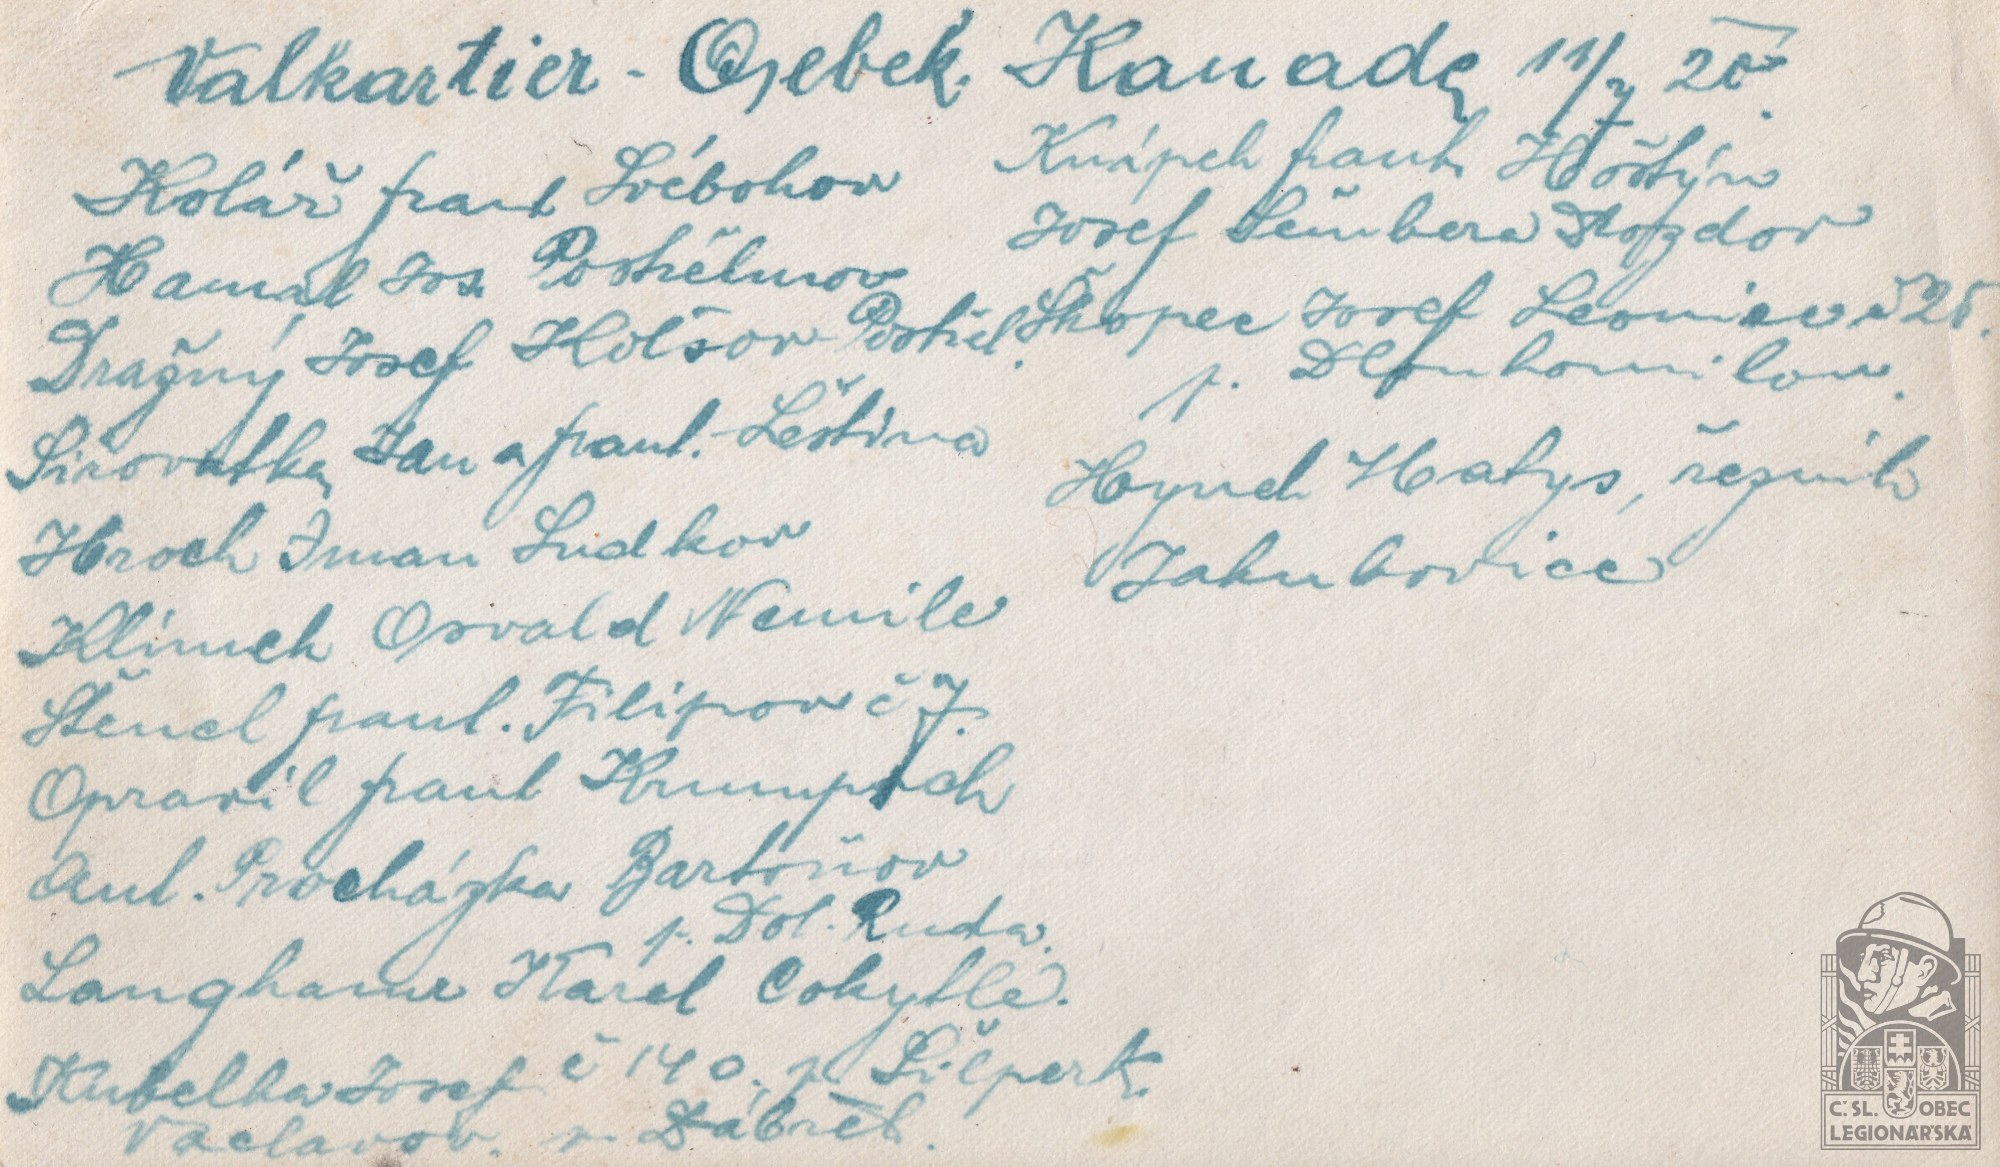 Valkartier - Qvebek. Kanada 11/7 20.
Kolář frant Svébohov
Hamal Jos. Postřelmov
Dražný Josef Kolšov Postřel.
Sirovatka Jan a frant. Leština
Hroch Iman Sudkov
Klimeh Osvald Nemile
Štencl frant. Filipov č 7.
Opravil frant Krumpich
Ant. Procházka Bartoňov
p. Dol. Ruda.
Langhamr Karel Cokytle.
Kubelka Josef č 140. p. Šilperk.
Václavov. p. Zábřeh.
Knápek frant. Hoštýn
Josef Šembera Rozdov
Škopec Josef Lesnice č 25.
p. Dlouhomilov.
Hynek Matys, řezník
Jakubovice
Č.SL. OBEC
LEGIONÁŘSKÁ